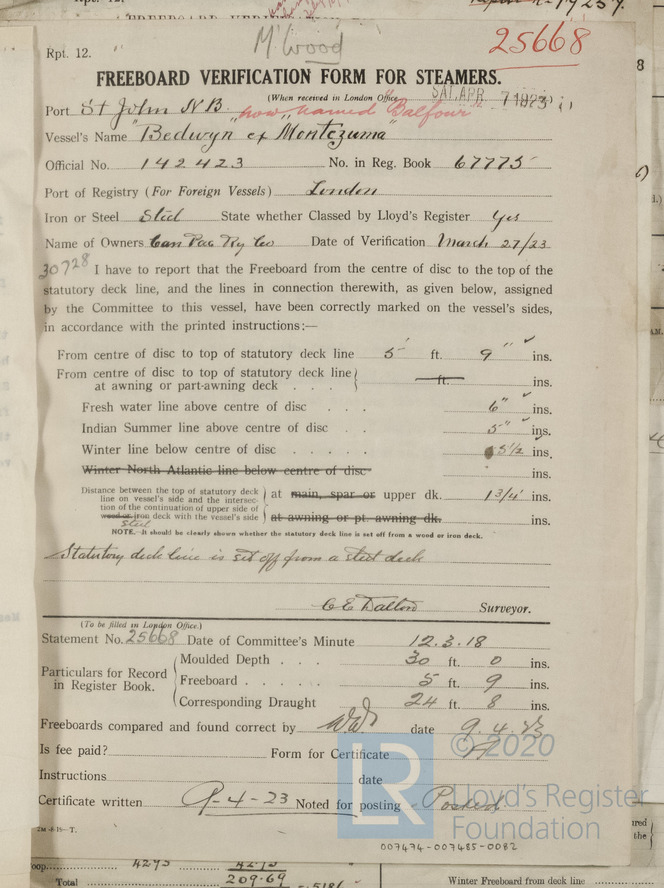 M'Wood
25668
Rpt. 12.
FREEBOARD VERIFICATION FORM FOR STEAMERS.
(When received in London Office SAT. APR. 7 1923)
Port St John N B. now named "Balfour"
Vessel's Name "Bedwyn ex Montezuma"
Official No. 142423 No. in Reg. Book 67775
Port of Registry (For Foreign Vessels) London
Iron or Steel Steel State whether Classed by Lloyd's Register Yes
Name of Owners Can Pac Ry Co Date of Verification March 27/23
30728
I have to report that the Freeboard from the centre of disc to the top of the
statutory deck line, and the lines in connection therewith, as given below, assigned
by the Committee to this vessel, have been correctly marked on the vessel's sides,
in accordance with the printed instructions:—
From centre of disc to top of statutory deck line 5' ft. 9" ins.
From centre of disc to top of statutory deck line
at awning or part-awning deck . . . ft. ins.
Fresh water line above centre of disc . . . 6" ins.
Indian Summer line above centre of disc . . 5" ins.
Winter line below centre of disc . . . . . 5 1/2 ins.
Winter North Atlantic line below centre of disc ins.
Distance between the top of statutory deck
line on vessel's side and the intersec-
tion of the continuation of upper side of
wood or iron deck with the vessel's side
steel
at main, spar or upper dk. 1 3/4" ins.
at awning or pt. awning dk. ins.
NOTE.—It should be clearly shown whether the statutory deck line is set off from a wood or iron deck.
Statutory deck line is set off from a steel deck
C E Dalton Surveyor.
(To be filled in London Office.)
Statement No. 25668 Date of Committee's Minute 12.3.18
Particulars for Record
in Register Book.
Moulded Depth . . . 30 ft. 0 ins.
Freeboard . . . . . 5 ft. 9 ins.
Corresponding Draught 24 ft. 8 ins.
Freeboards compared and found correct by date 9.4.23
Is fee paid? Form for Certificate
Instructions date
Certificate written 9-4-23 Noted for posting Posted
2M-6-18—T.
© 2020
LR
Lloyd's Register
Foundation
007474-007485-0082
4295
Total 209.69
Winter Freeboard from deck line